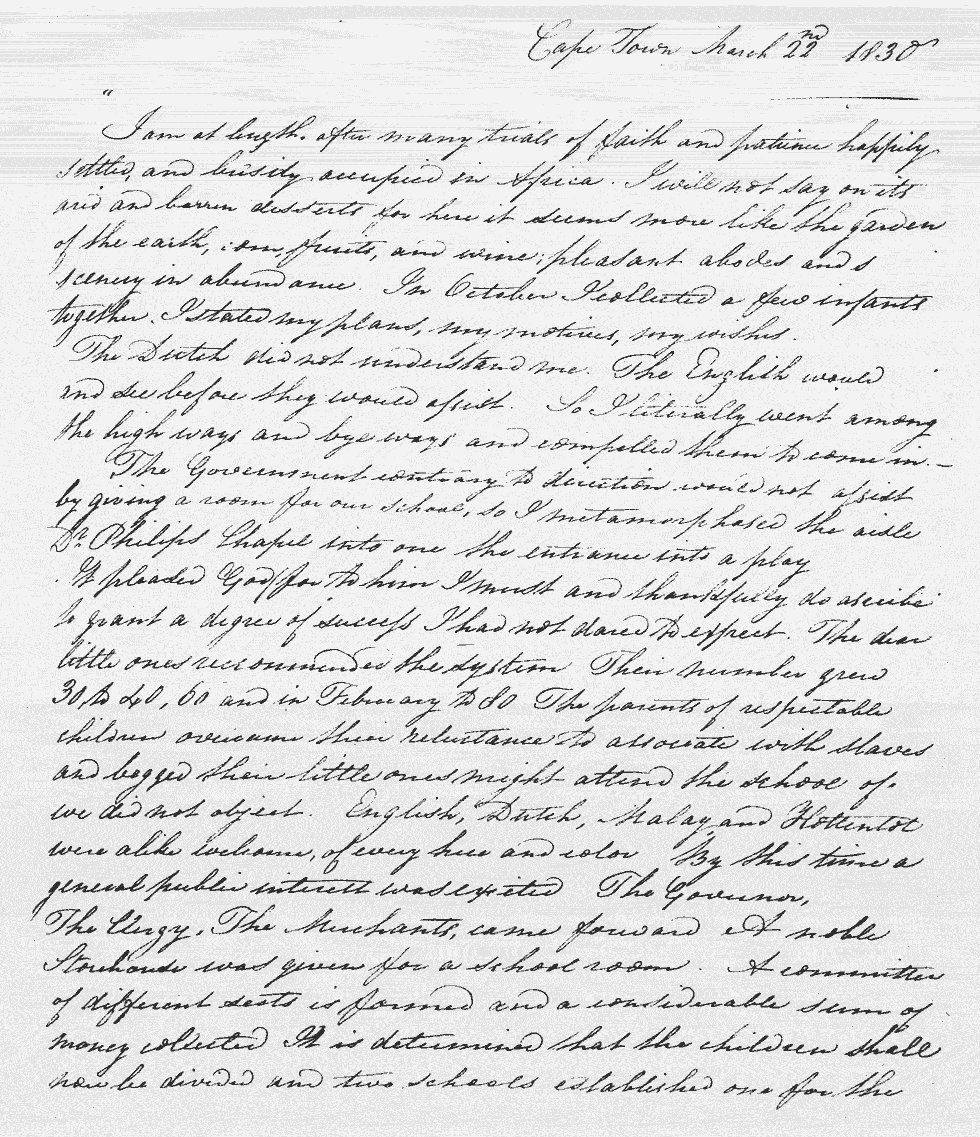 Cape Town March 22nd 1830
"
I am at length. after many trials of faith and patience happily
settled, and busily occupied in Africa. I will not say on its
arid and barren desserts for here it seems more like the garden
of the earth, corn, fruits, and wine; pleasant abodes and s
scenery in abundance. In October I collected a few infants
together. I stated my plans, my motives, my wishes.
The Dutch did not understand me. The English would
and see before they would assist. So I literally went among
the high ways and bye ways and compelled them to come in.–
The Government contrary to direction would not assist
by giving a room for our school, so I metamorphosed the aisle
Dr. Philips Chapel into one the entrance into a play
. It pleased God (for to him I must and thankfully do ascribe
to grant a degree of success I had not dared to expect. The dear
little ones recommended the system Their number grew
30, to 40, 60 and in February to 80 The parents of respectable
children overcame their reluctance to associate with slaves
and begged their little ones might attend the school of.
we did not object. English, Dutch, Malay and Hottentot
were alike welcome, of every hue and color By this time a
general public interest was exited The Governor,
The Clergy, The Merchants, came forward A noble
Storehouse was given for a school room. A committee
of different sects is formed and a considerable sum of
money collected It is determined that the children shall
now be divided and two schools established one for the